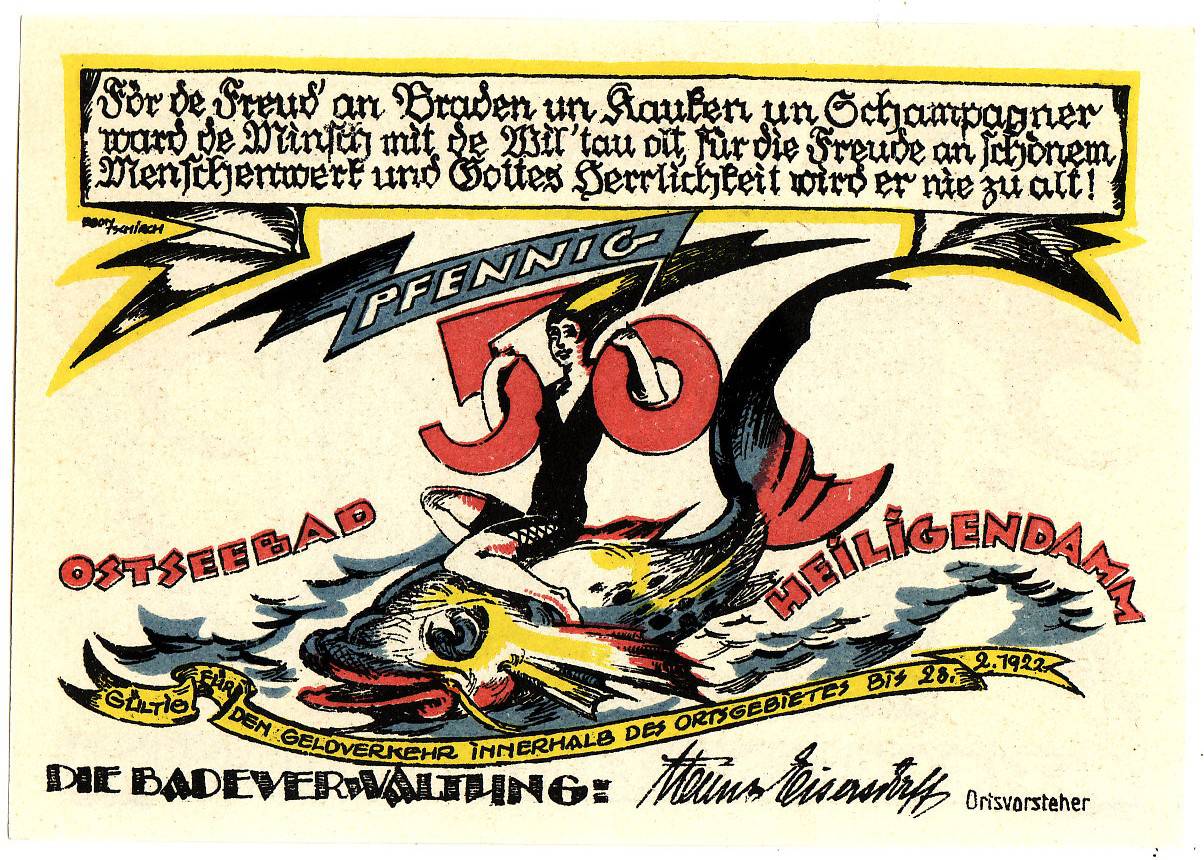 För de Freud' an Braden un Kauken un Schampagner
ward de Minsch mit de Wil' tau olt, für die Freude an schönem
Menschenwerk und Gottes Herrlichkeit wird er nie zu alt!
EGON
TSCHIRCH
PFENNIG
50
OSTSEEBAD HEILIGENDAMM
GÜLTIG FÜR DEN GELDVERKEHR INNERHALB DES ORTSGEBIETES BIS 28. 2. 1922
DIE BADEVERWALTUNG: Ortsvorsteher